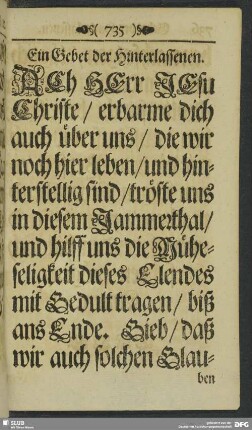 ( 735 )
Ein Gebet der Hinterlassenen.
ACh HErr JEsu
Christe / erbarme dich
auch über uns / die wir
noch hier leben / und hin-
terstellig sind / tröste uns
in diesem Jammerthal /
und hilff uns die Mühe-
seligkeit dieses Elendes
mit Gedult tragen / biß
ans Ende. Gieb / daß
wir auch solchen Glau-
ben
SLUB